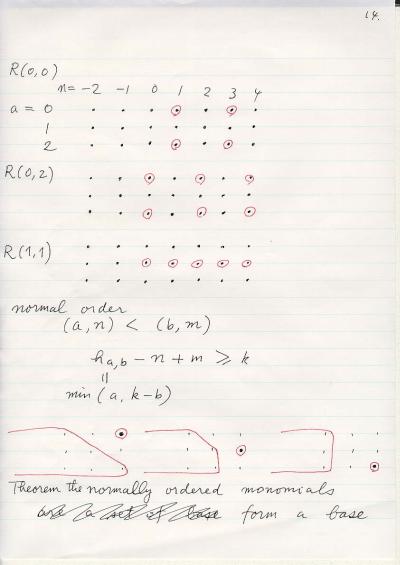 14.
R(0,0)
n= -2 -1 0 1 2 3 4
a = 0
1
2
R(0,2)
R(1,1)
normal order
(a, n) < (b, m)
h_{a,b} - n + m ⩾ k
=
min (a, k-b)
Theorem the normally ordered monomials
are a set of base form a base